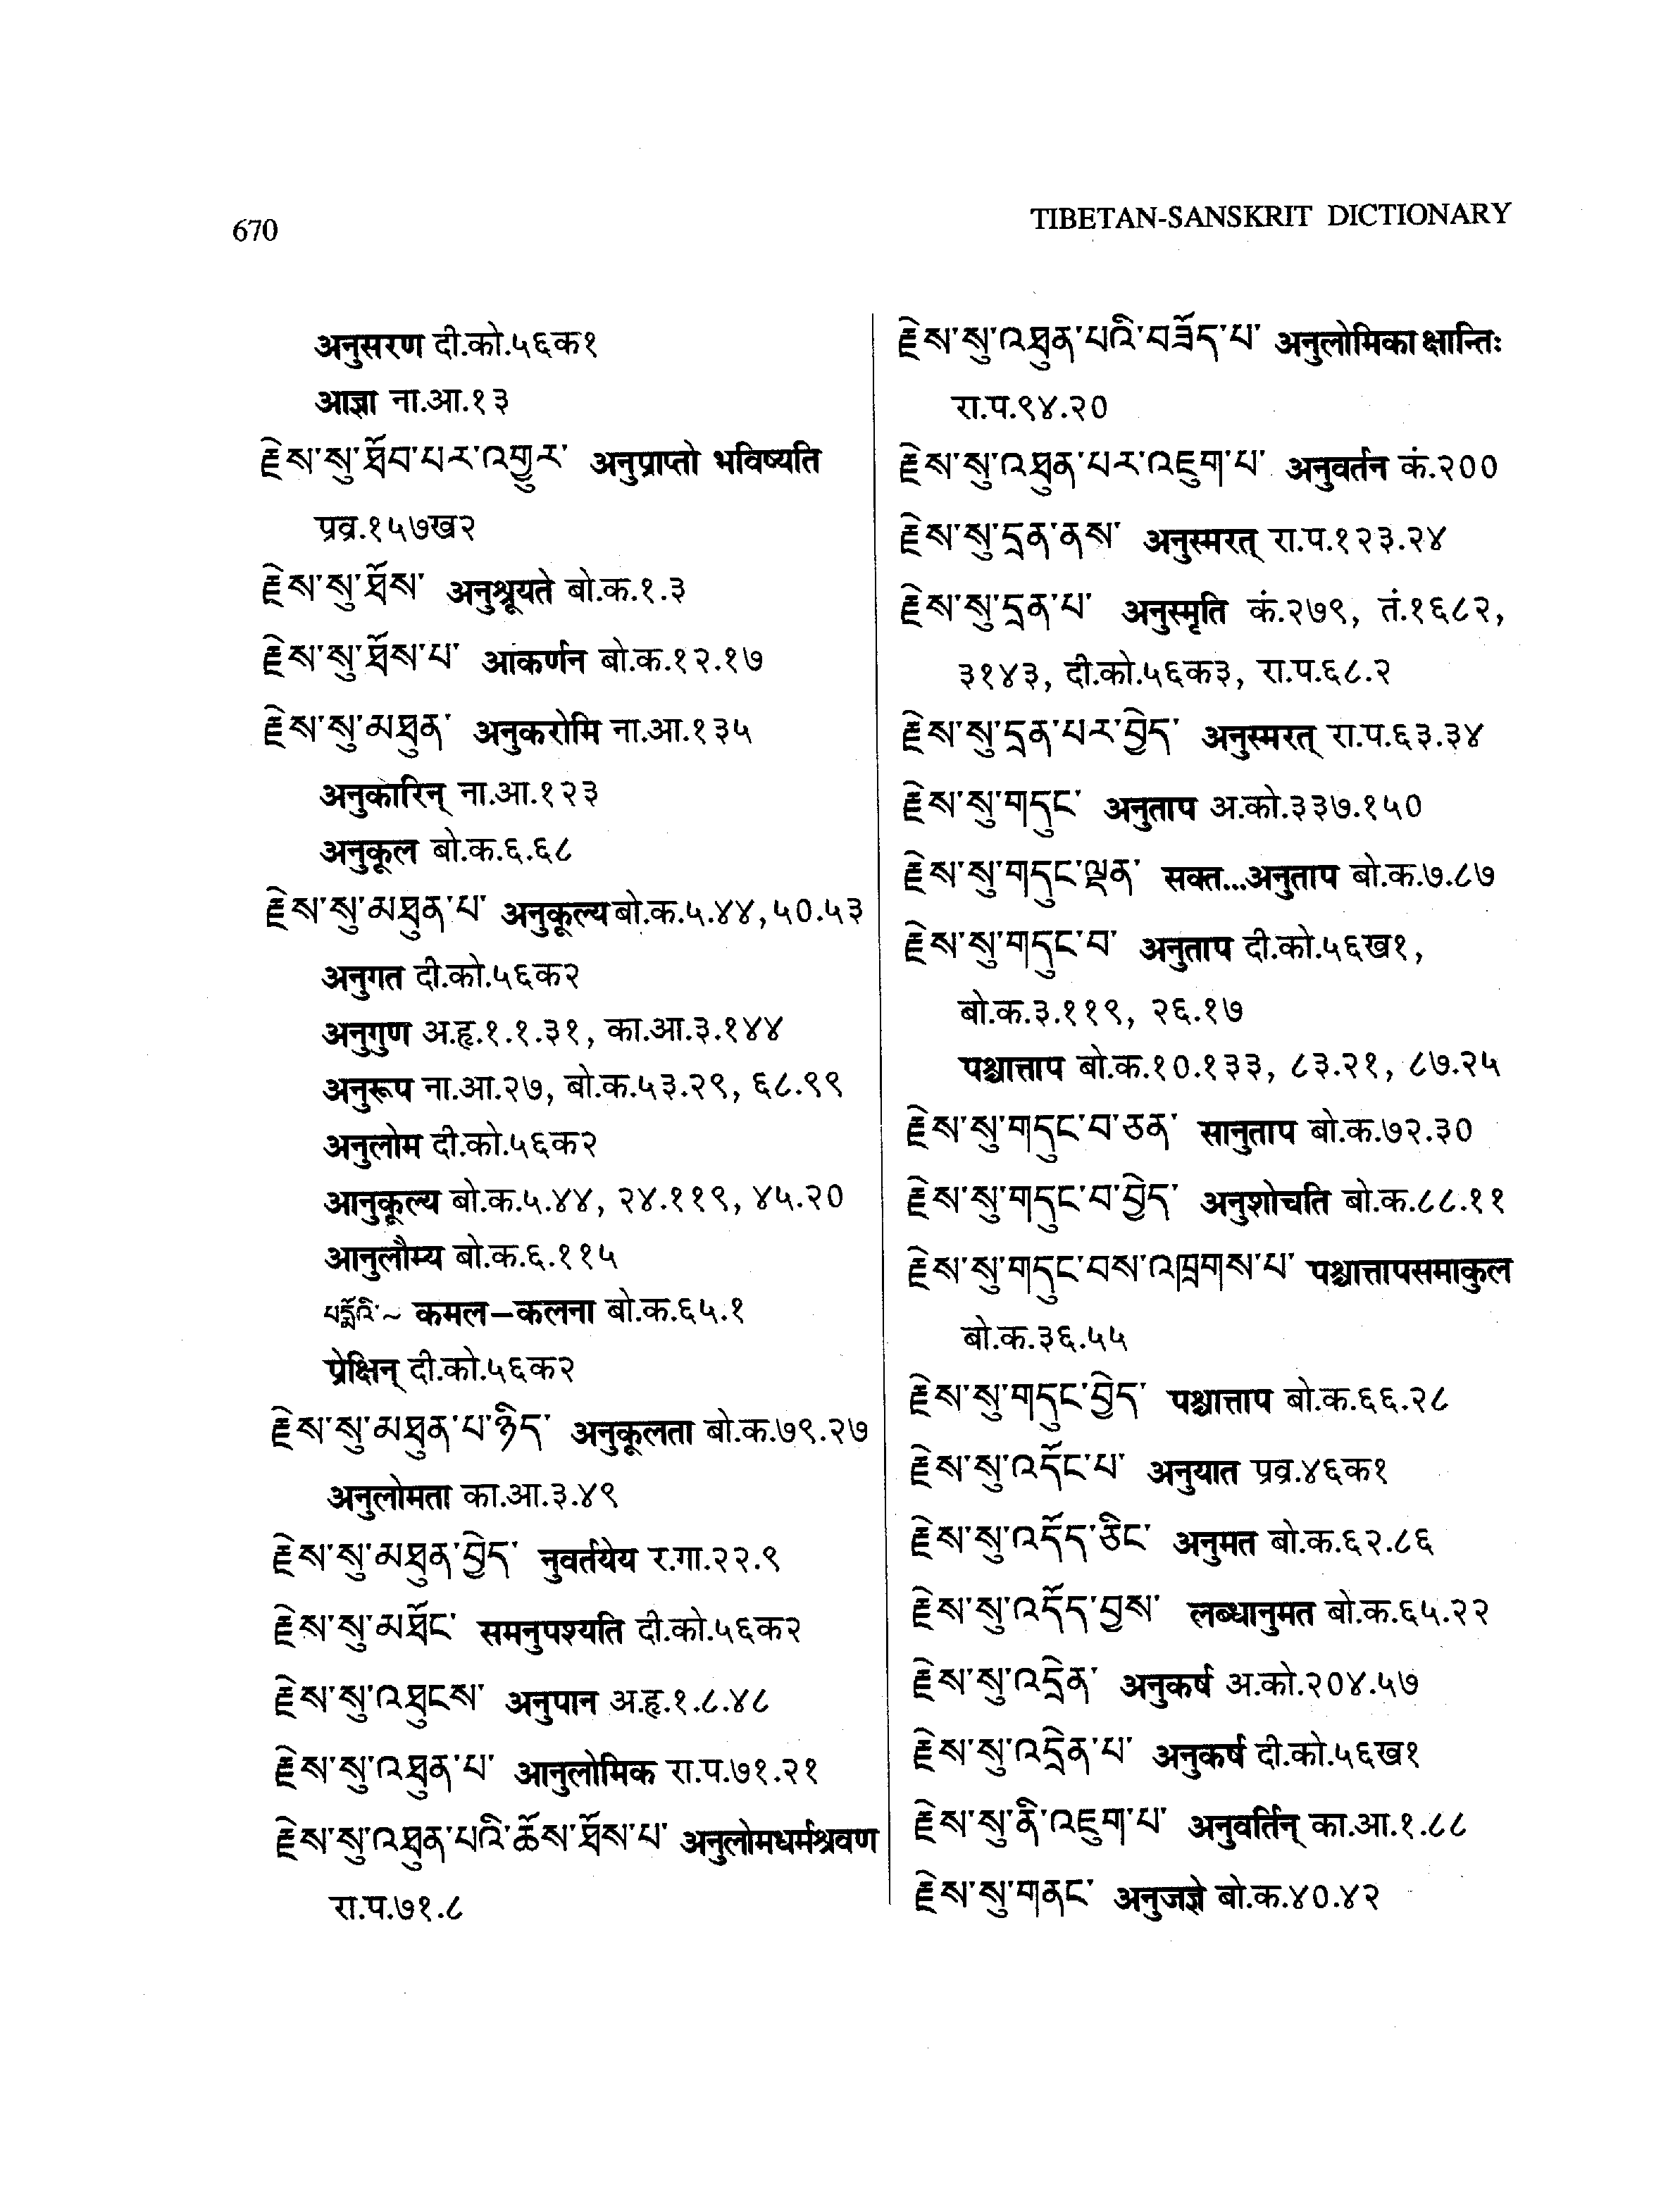 670
TIBETAN-SANSKRIT DICTIONARY
अनुसरण दी.को.५६क१
आज्ञा ना.आ.१३
རྗེས་སུ་ཐོབ་པར་འགྱུར་ अनुप्राप्तो भविष्यति
प्रव्र.१५७ख२
རྗེས་སུ་ཐོས་ अनुश्रूयते बो.क.१.३
རྗེས་སུ་ཐོས་པ་ आकर्णन बो.क.१२.१७
རྗེས་སུ་མཐུན་ अनुकरोमि ना.आ.१३५
अनुकारिन् ना.आ.१२३
अनुकूल बो.क.६.६८
རྗེས་སུ་མཐུན་པ་ अनुकूल्य बो.क.५.४४, ५०.५३
अनुगत दी.को.५६क२
अनुगुण अ.हृ.१.१.३१, का.आ.३.१४४
अनुरूप ना.आ.२७, बो.क.५३.२९, ६८.९९
अनुलोम दी.को.५६क२
आनुकूल्य बो.क.५.४४, २४.११९, ४५.२०
आनुलौम्य बो.क.६.११५
པདྨོའི་~ कमल–कलना बो.क.६५.१
प्रेक्षिन् दी.को.५६क२
རྗེས་སུ་མཐུན་པ་ཉིད་ अनुकूलता बो.क.७९.२७
अनुलोमता का.आ.३.४९
རྗེས་སུ་མཐུན་བྱེད་ नुवर्तयेय र.गा.२२.९
རྗེས་སུ་མཐོང་ समनुपश्यति दी.को.५६क२
རྗེས་སུ་འཐུངས་ अनुपान अ.हृ.१.८.४८
རྗེས་སུ་འཐུན་པ་ आनुलोमिक रा.प.७१.२१
རྗེས་སུ་འཐུན་པའི་ཆོས་ཐོས་པ་ अनुलोमधर्मश्रवण
रा.प.७१.८
རྗེས་སུ་འཐུན་པའི་བཟོད་པ་ अनुलोमिका क्षान्तिः
रा.प.९४.२०
རྗེས་སུ་འཐུན་པར་འཇུག་པ་ अनुवर्तन कं.२००
རྗེས་སུ་དྲན་ནས་ अनुस्मरत् रा.प.१२३.२४
རྗེས་སུ་དྲན་པ་ अनुस्मृति कं.२७९, तं.१६८२,
३१४३, दी.को.५६क३, रा.प.६८.२
རྗེས་སུ་དྲན་པར་བྱེད་ अनुस्मरत् रा.प.६३.३४
རྗེས་སུ་གདུང་ अनुताप अ.को.३३७.१५०
རྗེས་སུ་གདུང་ལྡན་ सक्त...अनुताप बो.क.७.८७
རྗེས་སུ་གདུང་བ་ अनुताप दी.को.५६ख१,
बो.क.३.११९, २६.१७
पश्चात्ताप बो.क.१०.१३३, ८३.२१, ८७.२५
རྗེས་སུ་གདུང་བ་ཅན་ सानुताप बो.क.७२.३०
རྗེས་སུ་གདུང་བ་བྱེད་ अनुशोचति बो.क.८८.११
རྗེས་སུ་གདུང་བས་འཁྲུགས་པ་ पश्चात्तापसमाकुल
बो.क.३६.५५
རྗེས་སུ་གདུང་བྱེད་ पश्चात्ताप बो.क.६६.२८
རྗེས་སུ་འདོང་པ་ अनुयात प्रव्र.४६क१
རྗེས་སུ་འདོད་ཅིང་ अनुमत बो.क.६२.८६
རྗེས་སུ་འདོད་བྱས་ लब्धानुमत बो.क.६५.२२
རྗེས་སུ་འདྲེན་ अनुकर्ष अ.को.२०४.५७
རྗེས་སུ་འདྲེན་པ་ अनुकर्ष दी.को.५६ख१
རྗེས་སུ་ནི་འཇུག་པ་ अनुवर्तिन् का.आ.१.८८
རྗེས་སུ་གནང་ अनुजज्ञे बो.क.४०.४२